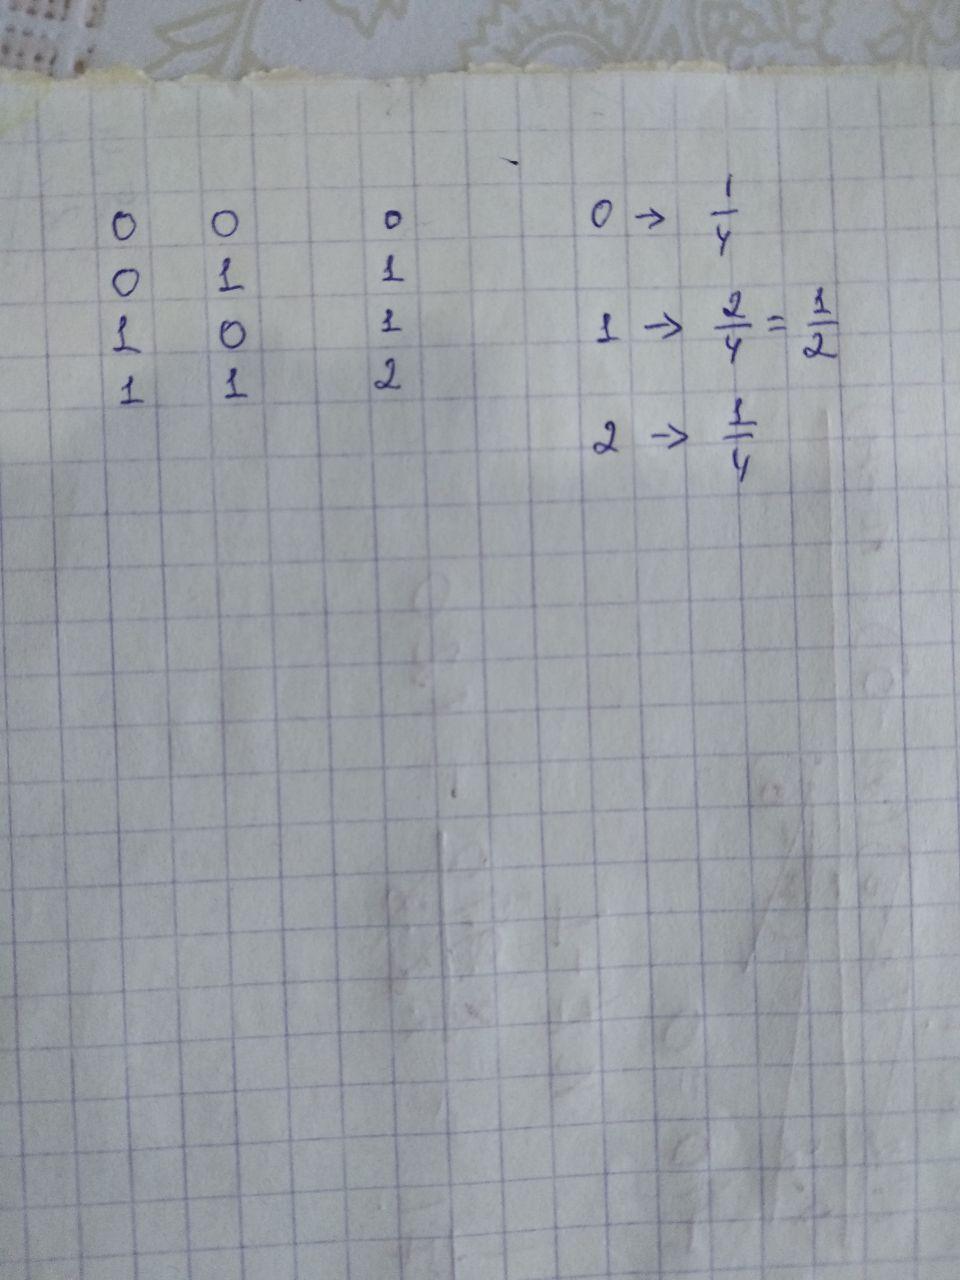 0 0 0
0 1 1
1 0 1
1 1 2
0 → 1/4
1 → 2/4 = 1/2
2 → 1/4